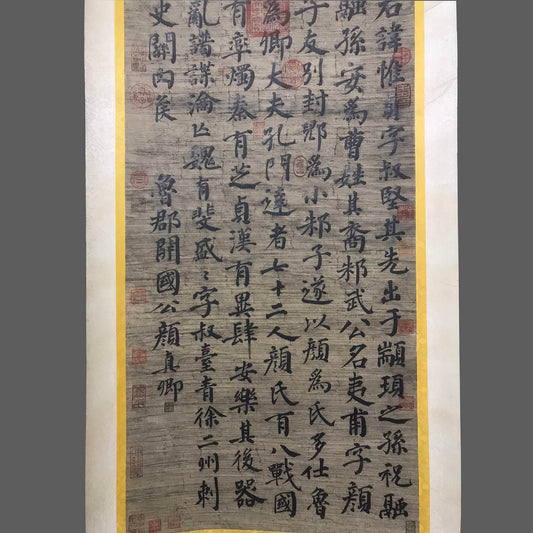 君諱惟貞字叔堅其先出于顓頊之孫祝融
融孫安為曹姓其裔邾武公名夷甫字顏
子友別封郳為小邾子遂以顏為氏多仕魯
為卿大夫孔門達者七十二人顏氏百八戰國
有率燭秦有芝貞漢有異肆安樂其後器
亂譜諜淪亡魏有斐盛〻字叔臺青徐二州刺
史關內侯
魯郡開國公顏真卿